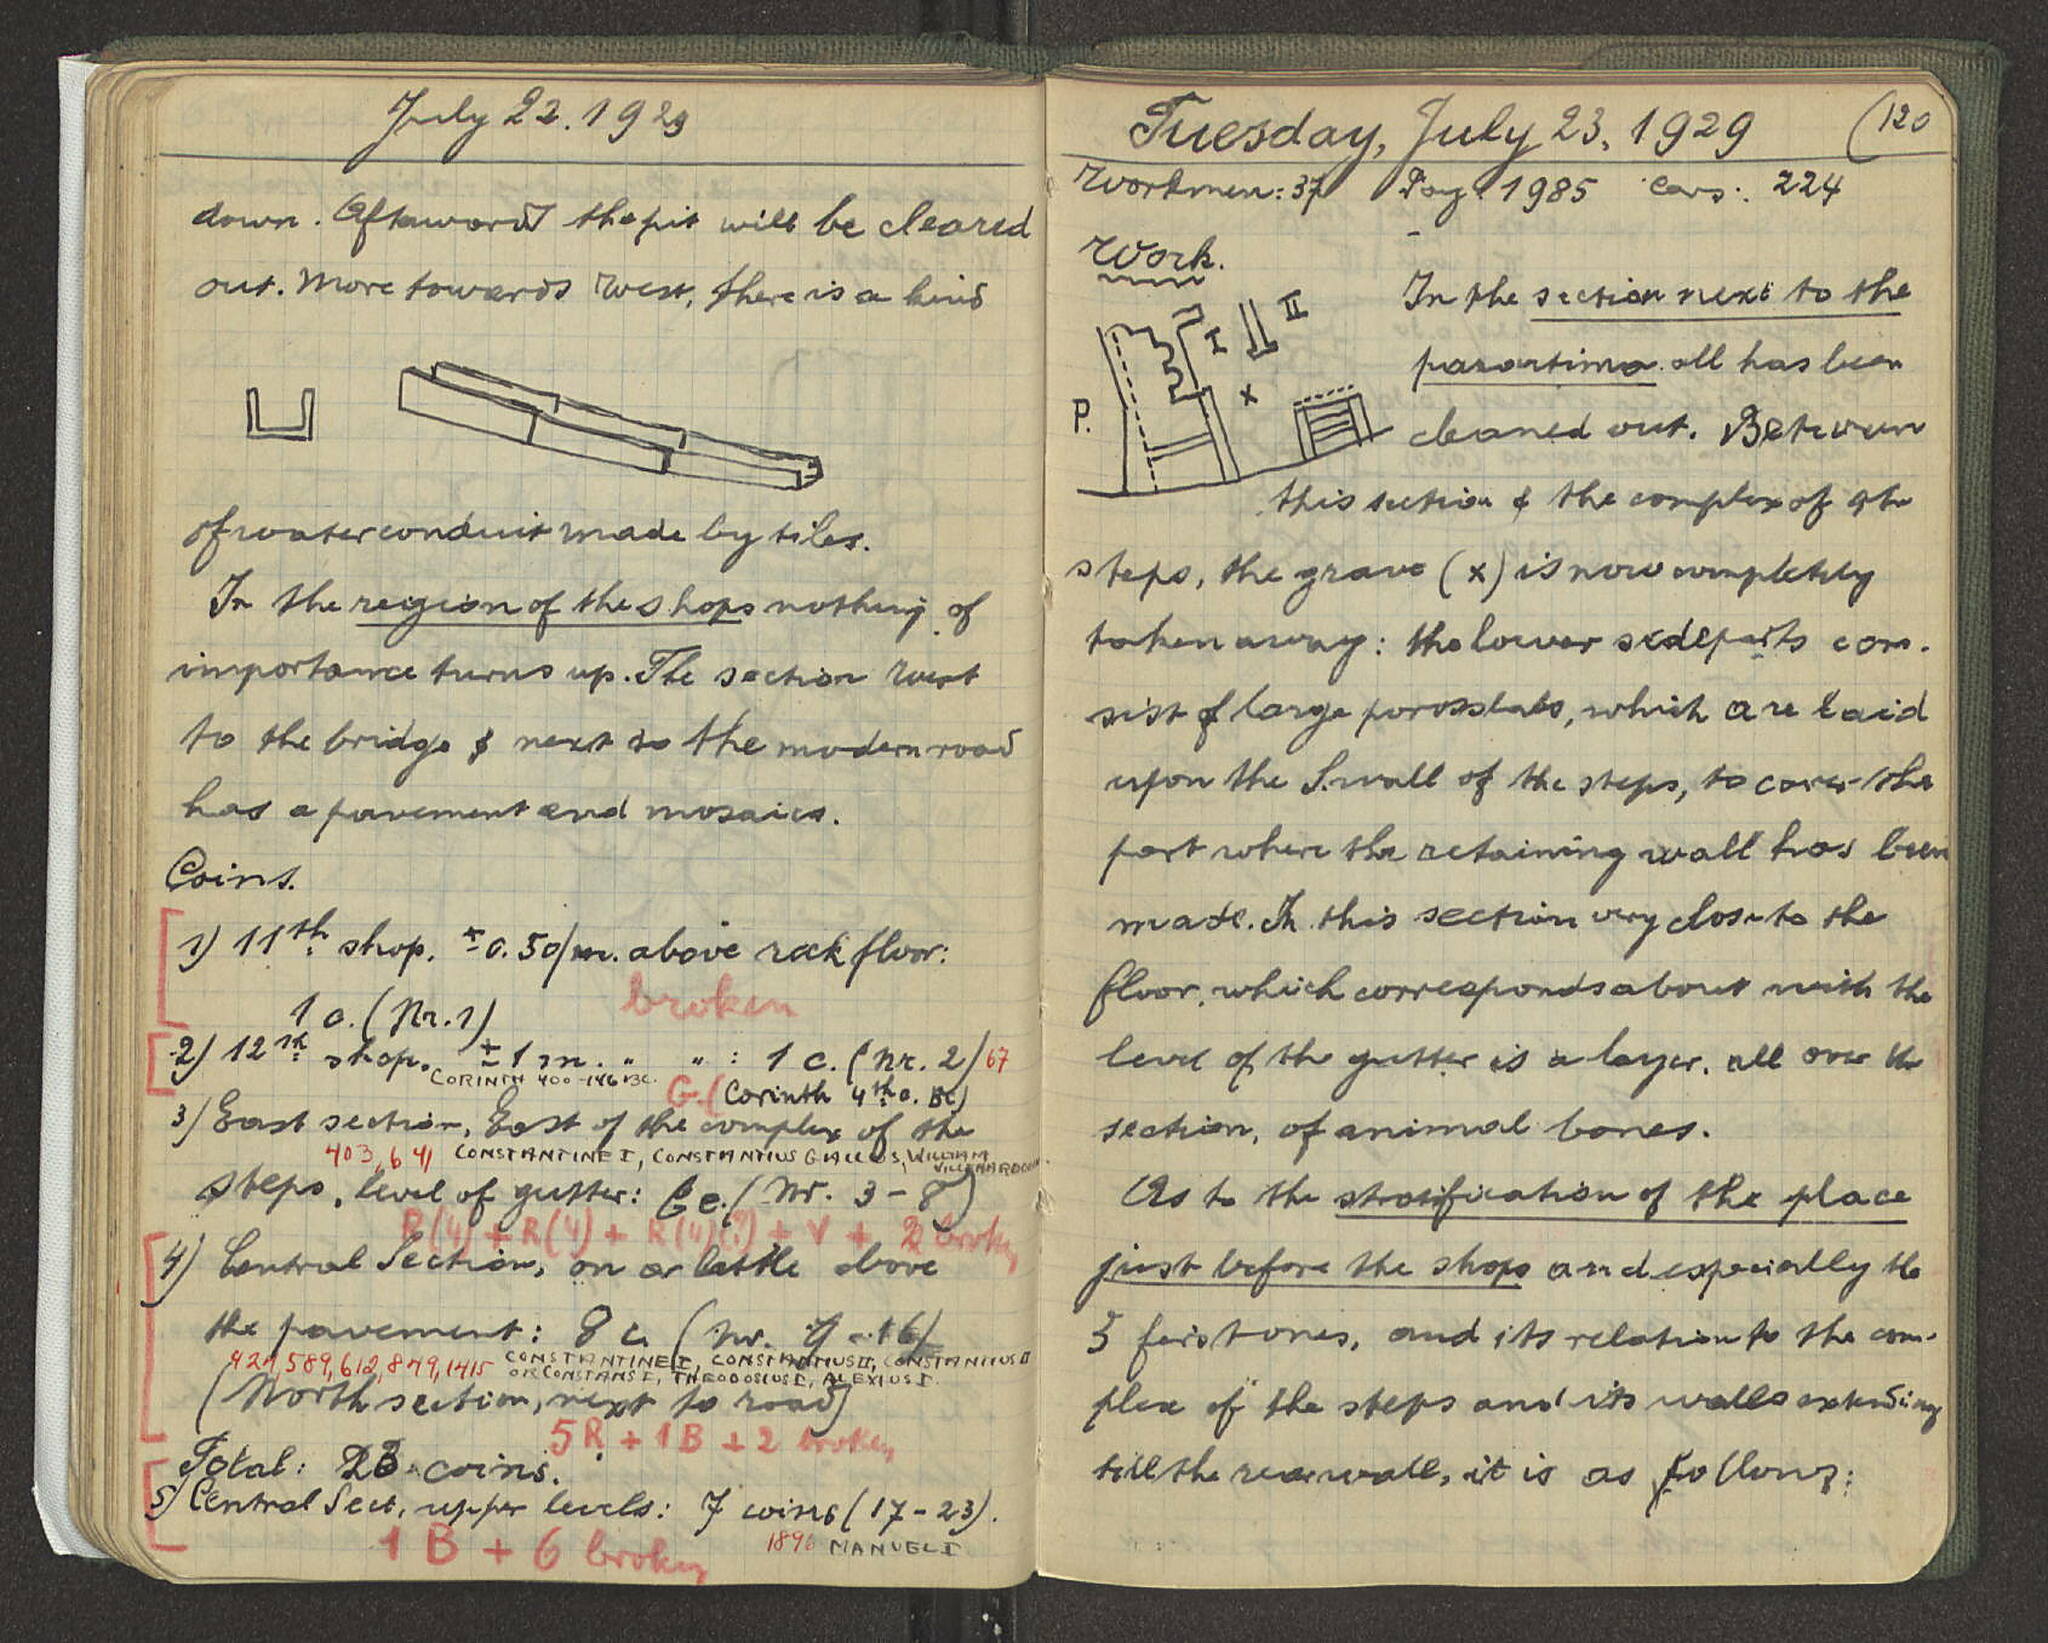 July 22. 1929
down. Afterwards the pit will be cleared
out. More towards West, there is a kind
of waterconduit made by tiles.
In the region of the shops nothing of
importance turns up. The section West
to the bridge & next to the modern road
has a pavement and mosaics.
Coins.
1) 11th shop. ± 0.50/m. above rock floor:
1 c. (Nr. 1)
broken
2) 12th shop. ± 1 m. " " : 1 c. (Nr. 2) 67
CORINTH 400-146 BC.
G. (Corinth 4th c. BC)
3) East section, East of the complex of the
403, 641 CONSTANTINE I, CONSTANTIUS GALLUS, WILLIAM VILLEHARDOUIN
steps, level of gutter: 6 c. (Nr. 3-8)
R(4) + R(4) + R(4)(?) + V + 2 broken
4) Central Section, on or little above
the pavement: 8 c. (Nr. 9-16)
424, 589, 612, 849, 1415 CONSTANTINE I, CONSTANTIUS II, CONSTANTIUS II
OR CONSTANS I, THEODOSIUS I, ALEXIUS I.
(North section, next to road)
5R + 1B + 2 broken
Total: 23 coins.
5) Central Sect, upper levels: 7 coins (17-23).
1B + 6 broken
1896 MANUEL I
Tuesday, July 23, 1929 (120
Workmen: 37 Pay: 1985 Cars: 224
Work.
I II
P. x
In the section next to the
parartima all has been
cleaned out. Between
this section & the complex of the
steps, the grave (x) is now completely
taken away: the lower sideparts con-
sist of large porosslabs, which are laid
upon the S.wall of the steps, to cover the
part where the retaining wall has been
made. In this section very close to the
floor, which corresponds about with the
level of the gutter is a layer, all over the
section, of animal bones.
As to the stratification of the place
just before the shops and especially the
5 first ones, and its relation to the com-
plex of the steps and its walls extending
till the rearwall, it is as follows: